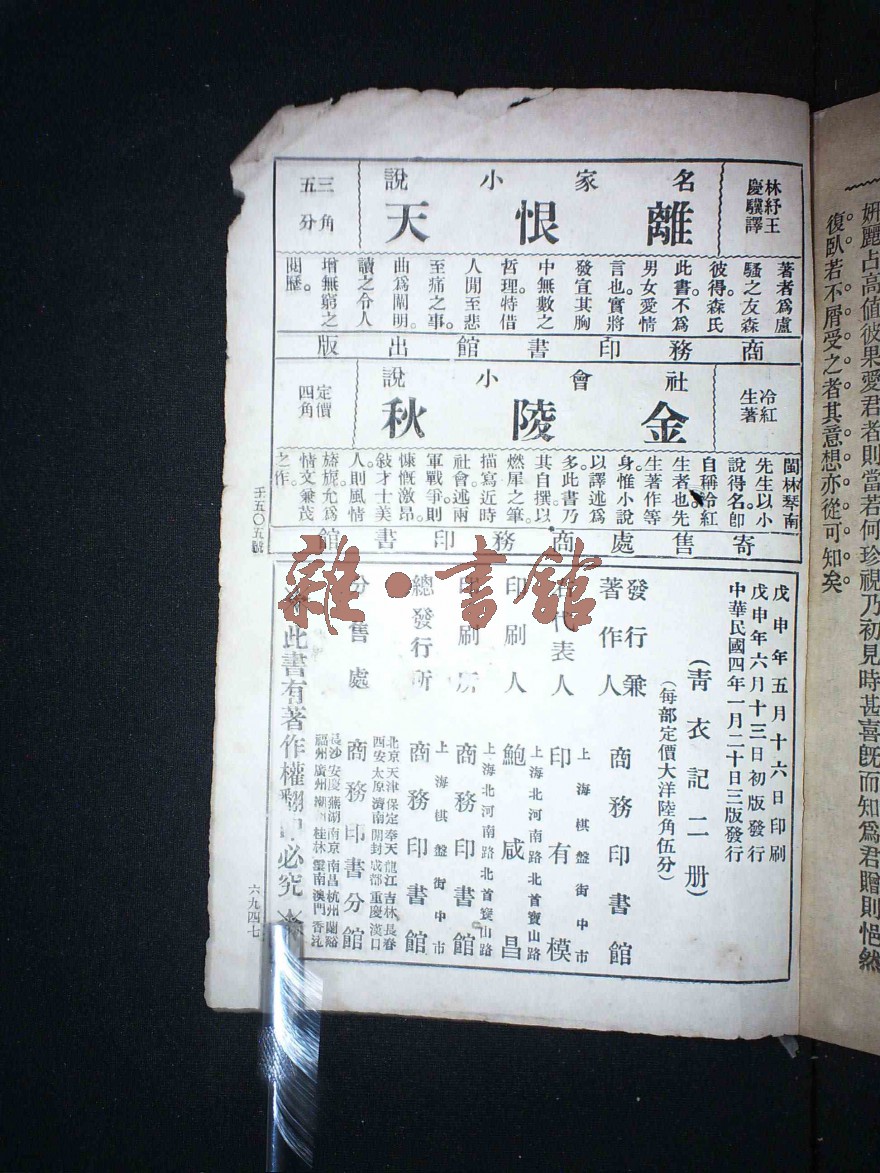 妍麗占高值彼果愛君者則當若何珍視乃初見時甚喜旣而知爲君贈則悒然
復臥若不屑受之者其意想亦從可知矣。
林紓王
慶驥譯
名家小說
離恨天
三角
五分
著者爲盧
騷之友森
彼得森氏
此書不爲
男女愛情
言也。實將
發宣其胸
中無數之
哲理特借
人閒至悲
至痛之事。
曲爲闡明。
讀之令人
增無窮之
閱歷。
商務印書館出版
冷紅
生著
社會小說
金陵秋
定價
四角
閩林琴南
先生以小
說得名。卽
自稱冷紅
生者也。先
生著作等
身。惟小說
以譯述爲
多此書乃
其自撰以
燃犀之筆。
描寫近時
社會。述兩
軍戰爭。則
慷慨激昂。
敍才士美
人。則風情
旖旎。尤爲
情文兼茂
之作。
寄售處商務印書館
壬五〇五號
戊申年五月十六日印刷
戊申年六月十三日初版發行
中華民國四年一月二十日三版發行
(靑衣記二册)
(每部定價大洋陸角伍分)
發行兼
著作人 商務印書館
上海棋盤街中市
右代表人 印有模
上海北河南路北首寶山路
印刷人 鮑咸昌
上海北河南路北首寶山路
印刷所 商務印書館
上海棋盤街中市
總發行所 商務印書館
北京天津保定奉天龍江吉林長春
西安太原濟南開封成都重慶漢口
分售處 商務印書分館
長沙安慶蕪湖南京南昌杭州蘭谿
福州廣州潮州桂林雲南澳門香港
此書有著作權翻印必究
六九四七
雜·書館